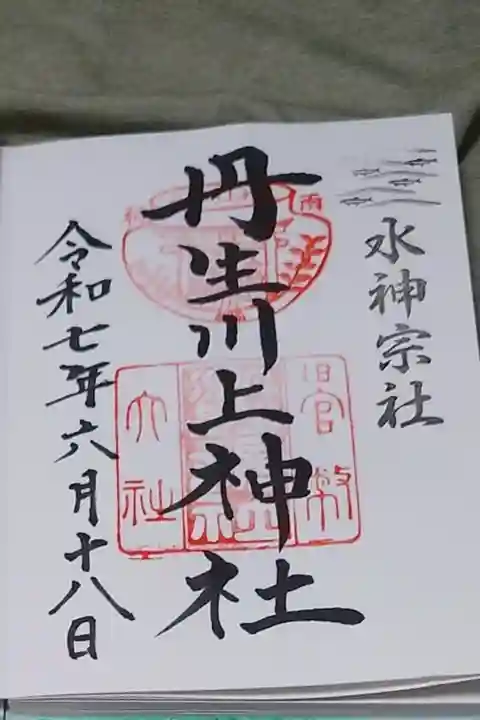 水神宗社
丹生川上神社
雨
旧官幣
大社
令和七年六月十八日